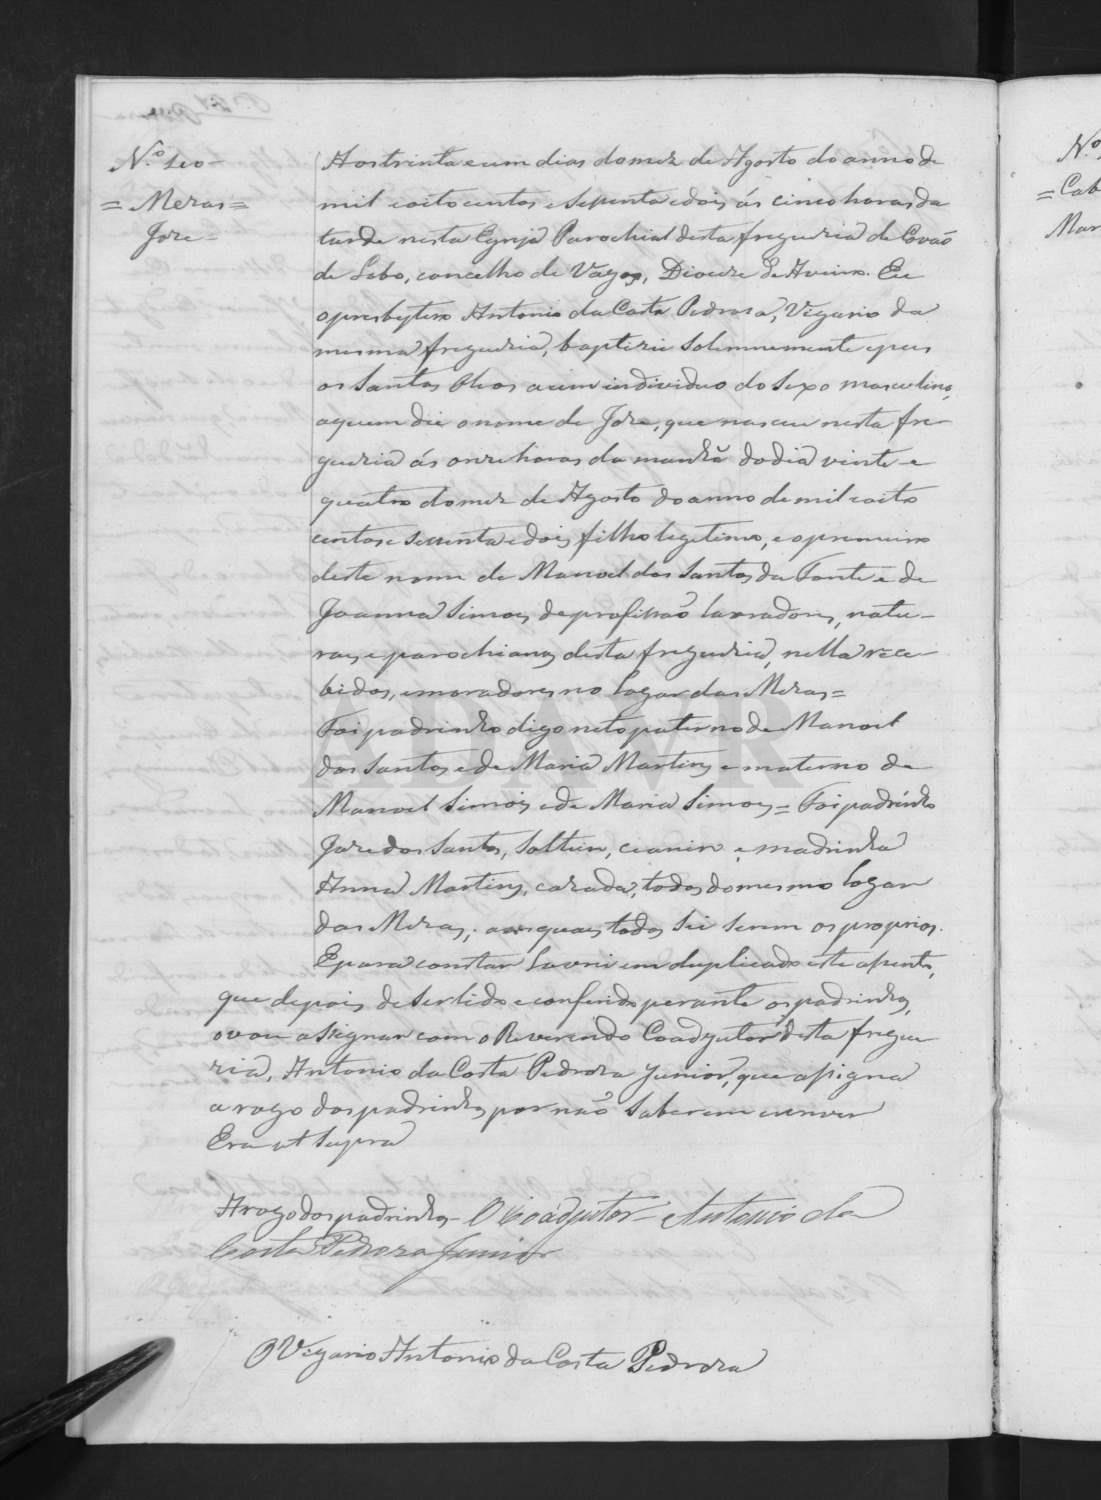 N.º 100
= Mezas =
Joze =
Aos trinta e um dias do mez de Agosto do anno de
mil e oito centos e septenta e dois ás cinco horas da
tarde nesta Egreja Parochial desta freguezia de Covão
de Lobo, concelho de Vagos, Diocese de Aveiro. Eu
o presbytero Antonio da Costa Pedroza, Vigario da
mesma freguezia, baptizei solemnemente e puz
os Santos Oleos a um individuo do sexo masculino,
a quem dei o nome de Joze, que nasceu nesta fre-
guezia ás onze horas da manhã do dia vinte e
quatro do mez de Agosto do anno de mil e oito
centos e setenta e dois, filho legitimo, e o primeiro
deste nome de Manoel dos Santos da Fonte e de
Joanna Simões, de profissão lavradores, natu-
raes e parochianos desta freguezia, nella rece-
bidos, e moradores no logar das Mezas =
Foi padrinho digo neto paterno de Manoel
dos Santos e de Maria Martins e materno de
Manoel Simões e de Maria Simões = Foi padrinho
Joze dos Santos, solteiro, e madrinha
Anna Martins, cazada, todos do mesmo logar
das Mezas, os quaes todos sei serem os proprios.
E para constar lavrei em duplicado este assento,
que depois de ser lido e conferido perante os padrinhos,
o vou assignar com o Reverendo Coadjutor desta fregue
zia, Antonio da Costa Pedroza Junior, que assigna
a rogo dos padrinhos por não saberem escrever
Era ut supra
A rogo dos padrinhos - O Coadjutor - Antonio da
Costa Pedroza Junior
O Vigario Antonio da Costa Pedroza
N.º
= Cab
Mar
ADAVR